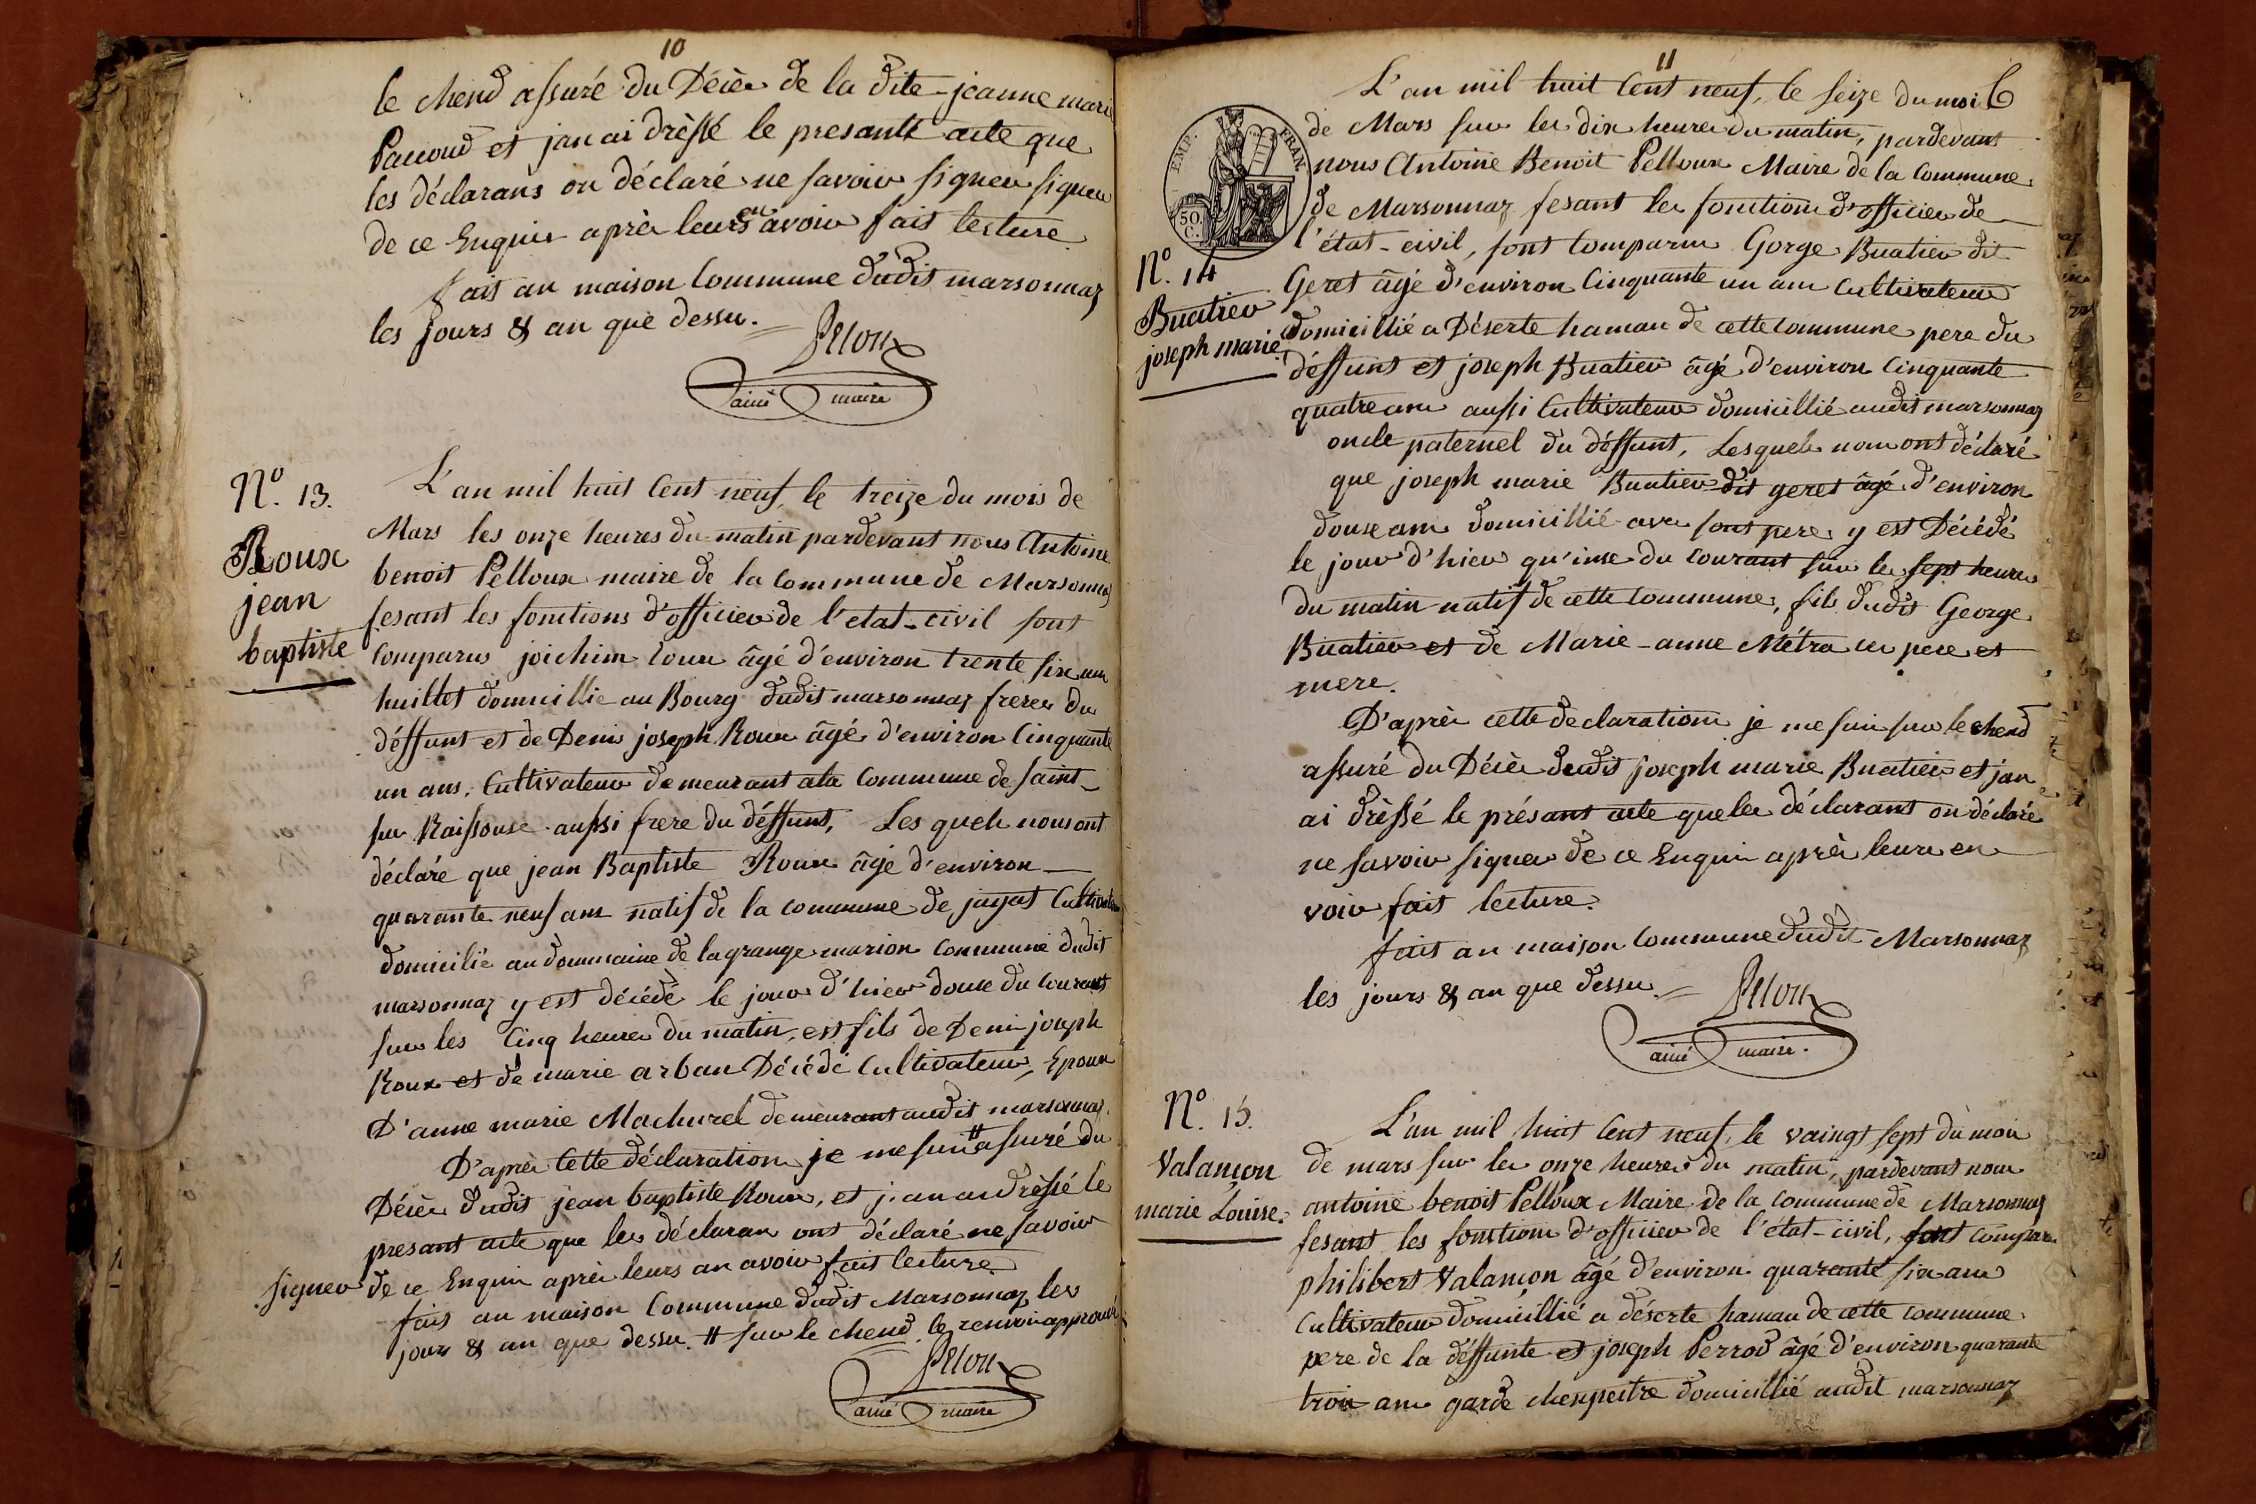 10
le chend assuré du Décès de la dite jeanne marie
Pauoud et jan ai drèssé le presante acte que
les déclarans on déclaré ne savoir signer signer
de ce Enquis après leurs en avoir fait lecture
fait an maison Commune dudit marsonnaz
les jours & an que dessu.
Pelloux
ainé maire
N.º 13.
Roux
jean
baptiste
L'an mil huit Cent neuf, le treize du mois de
Mars les onze heures du matin pardevant nous Antoine
benoit Pelloux maire de la Commune de Marsonnaz
fesant les fonctions d'officier de l'etat-civil sont
Comparus joichim Roux âgé d'environ trente six ans
huillet domicillié au Bourg dudit marsonnaz freres du
déffunt et de Denis joseph Roux âgé d'environ Cinquante
un ans, Cultivateur demeurant a la Commune de saint
sur Raissouse aussi frere du déffunt, Les quels nous ont
déclaré que jean Baptiste Roux âgé d'environ
quarante neuf ans natif de la commune de jayat Cultivateur
domicilié au dommaine de la grange marion Commune dudit
marsonnaz y est décédé le jour d'hier douse du courant
sur les Cinq heures du matin, est fils de Denis joseph
Roux et de marie arban Décédé Cultivateur, Epoux
D'anne marie Machurel demeurant audit marsonnaz.
D'après Cette déclaration je me suis # assuré du
Décès dudit jean baptiste Roux, et j'an ai drèssé le
presant acte que les déclarans ont déclaré ne savoir
signer de ce Enquis après leurs an avoir fait lecture
fais an maison Commune dudit Marsonnaz les
jours & an que dessu. # sur le chend le renvoi approuvé
Pelloux
ainé maire
11
6
EMP. FRAN.
50.
C.
N.º 14
Buatier
joseph marie
L'an mil huit Cent neuf, le seize du mois
de Mars sur les dix heures du matin, pardevant
nous Antoine Benoit Pelloux Maire de la Commune
de Marsonnaz fesant les fonctions d'officier de
l'état-civil, sont Comparus Gorge Buatier dit
Geret âgé d'environ Cinquante un ans Cultivateur
domicillié a Déserte haman de cette Commune pere du
déffunt et joseph Buatier âgé d'environ Cinquante
quatre ans aussi Cultivateur domicillié audit marsonnaz
oncle paternel du déffunt, Lesquels nous ont déclaré
que joseph marie Buatier dit geret âgé d'environ
douse ans domicillié avec sont pere y est Décédé
le jour d'hier qu'inse du courant sur les sept heures
du matin natif de cette Commune, fils dudit George
Buatier et de Marie-anne Métra ces pere et
mere.
D'après cette declaration je me suis sur le chend
assuré du Décès dudit joseph marie Buatier et jan
ai drèssé le présant acte que les déclarans on déclaré
ne savoir signer de ce Enquis après leurs en
voir fait lecture.
fait an maison Commune dudit Marsonnaz
les jours & an que dessu.
Pelloux
ainé maire.
N.º 15.
Valançon
marie Louise.
L'an mil huit Cent neuf, le vaingt sept du mois
de mars sur les onze heures du matin, pardevant nous
antoine benoit Pelloux Maire de la Commune de Marsonnaz
fesant les fonctions d'officier de l'état-civil, sont Comparu
philibert Valançon âgé d'environ quarante six ans
Cultivateur domicillié a déserte haman de cette Commune
pere de la déffunte et joseph Perrod âgé d'environ quarante
trois ans garde chenpeitre domicillié audit marsonnaz